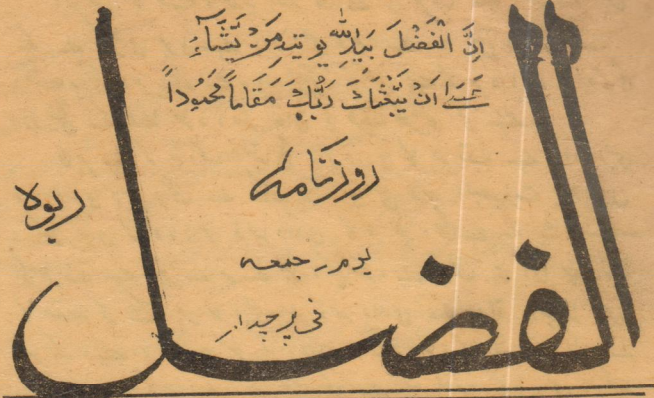 اِنَّ الْفَضْلَ بِيَدِ اللّٰهِ يُوتِيهِ مَنْ يَّشَآءُ
عَسَىٰ اَنْ يَّبْعَثَكَ رَبُّكَ مَقَامًا مَّحْمُودًا
روزنامہ
ربوہ
یوم جمعہ
فی پرچہ ۱ر
الفضل